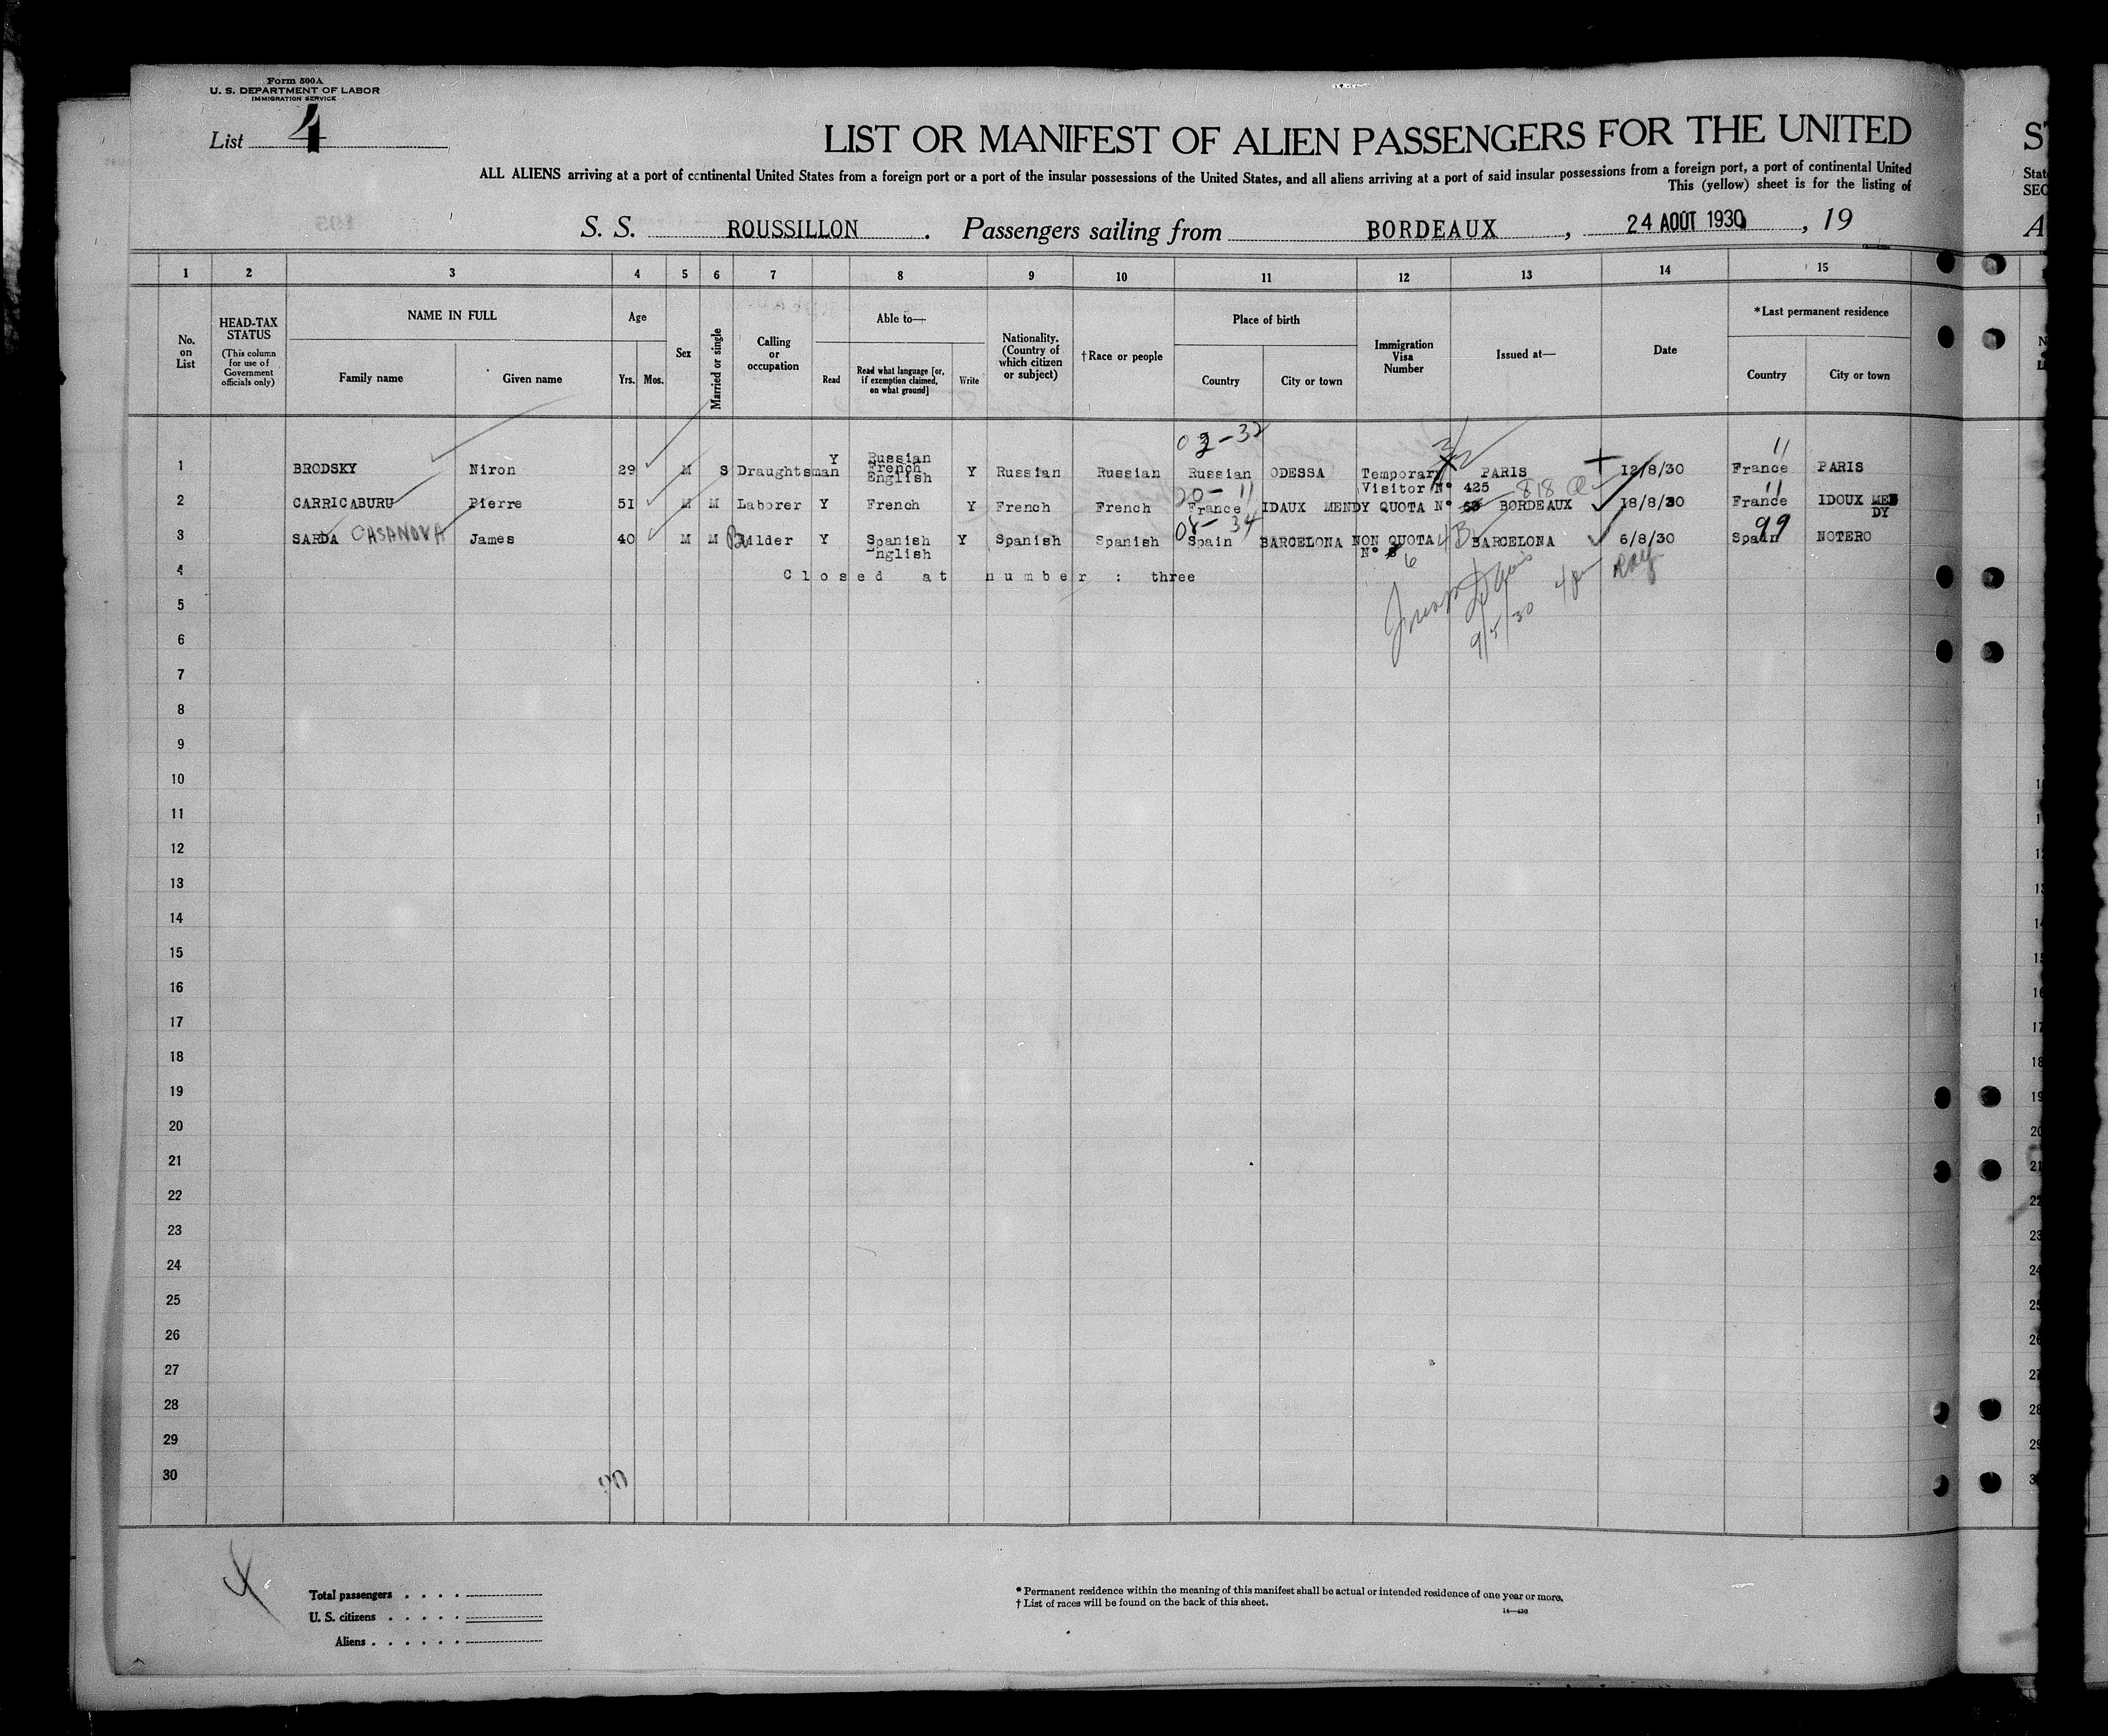 Form 500A
U. S. DEPARTMENT OF LABOR
IMMIGRATION SERVICE
List 4
LIST OR MANIFEST OF ALIEN PASSENGERS FOR THE UNITED
ALL ALIENS arriving at a port of continental United States from a foreign port or a port of the insular possessions of the United States, and all aliens arriving at a port of said insular possessions from a foreign port, a port of continental United
This (yellow) sheet is for the listing of
S. S. ROUSSILLON . Passengers sailing from BORDEAUX , 24 AOUT 1930 , 19
1 2 3 4 5 6 7 8 9 10 11 12 13 14 15
No. on List
HEAD-TAX STATUS
(This column for use of Government officials only)
NAME IN FULL
Family name Given name
Age
Yrs. Mos.
Sex
Married or single
Calling or occupation
Able to—
Read Read what language [or, if exemption claimed, on what ground] Write
Nationality. (Country of which citizen or subject)
†Race or people
Place of birth
Country City or town
Immigration Visa Number
Issued at—
Date
*Last permanent residence
Country City or town
03-32 11
1 BRODSKY Niron 29 M S Draughtsman Y Russian French English Y Russian Russian Russian ODESSA Temporary Visitor N° 425 PARIS 12/8/30 France PARIS
20- 11 818 11
2 CARRICABURU Pierre 51 M M Laborer Y French Y French French France IDAUX MENDY QUOTA N° BORDEAUX 18/8/30 France IDOUX MENDY
08- 34 4B 99
3 SARDA CASANOVA James 40 M M Builder Y Spanish English Y Spanish Spanish Spain BARCELONA NON QUOTA N° 6 BARCELONA 6/8/30 Spain NOTERO
4 Closed at number : three
9/5/30
5
6
7
8
9
10
11
12
13
14
15
16
17
18
19
20
21
22
23
24
25
26
27
28
29
30
Total passengers . . . .
U. S. citizens . . . . .
Aliens . . . . . .
* Permanent residence within the meaning of this manifest shall be actual or intended residence of one year or more.
† List of races will be found on the back of this sheet.